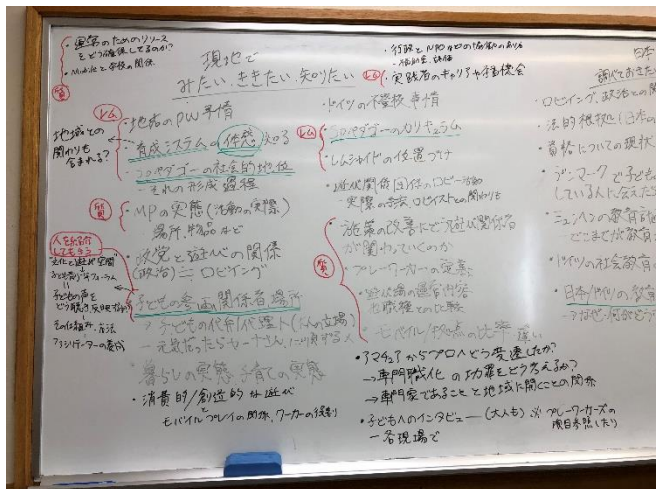 ・運営のためのリソースをどう確保してるのか?
・Mobileと学校の関係
質
現地で
みたい、ききたい、知りたい
レム
・地域のPW事情
地域との
関わりも
含まれる?
・育成システムの体系を知る
・ペダゴーの社会的地位
それの形成過程
質
・MPの実態(活動の実際)
場所、物品など
・政党と遊びの関係
(政治) ロビイング
人を紹介
してもらう
子どもの声を
どう聴き、
その仕組み、方法
ファシリテーターの養成
・子どもの参画の関係者、場所
→子どもの代弁/代理人(大人の立場)
・暮らしの実態 子育ての実態
・消費的/創造的な遊び
モバイルプレイの関係、ワーカーの役割
・行政とNPOなどの協働のあり方
レム
・実践者のキャリアや研修会
・ドイツの不登校事情
レム
・ペダゴーのカリキュラム
・レムシャイドの位置づけ
・遊び関係団体のロビー活動
実際の方法、ロビイストとの関わりも
質
・施策の改善にどう遊び関係者
が関わっていくのか
・プレーワーカーの定義
他職種との比較
・モバイル/拠点の比率 違い
・アマチュアからプロへどう変遷したか?
→専門職化の功罪をどう考えるか?
→専門家であることと地域に開くことの関係
・子どもへのインタビュー (大人も) ※プレーワーカーズの
項目参照したり
ー各現場で
日本
調べておきたい
・ロビイング、政治との関
・法的根拠(日本の
・資格についての現状
・デンマークで子ども
している人に会えたら
・ミュンヘンの教育計
どこまでが教育
・ドイツの社会教育の
・日本/ドイツの教育
→なぜ、何がどう